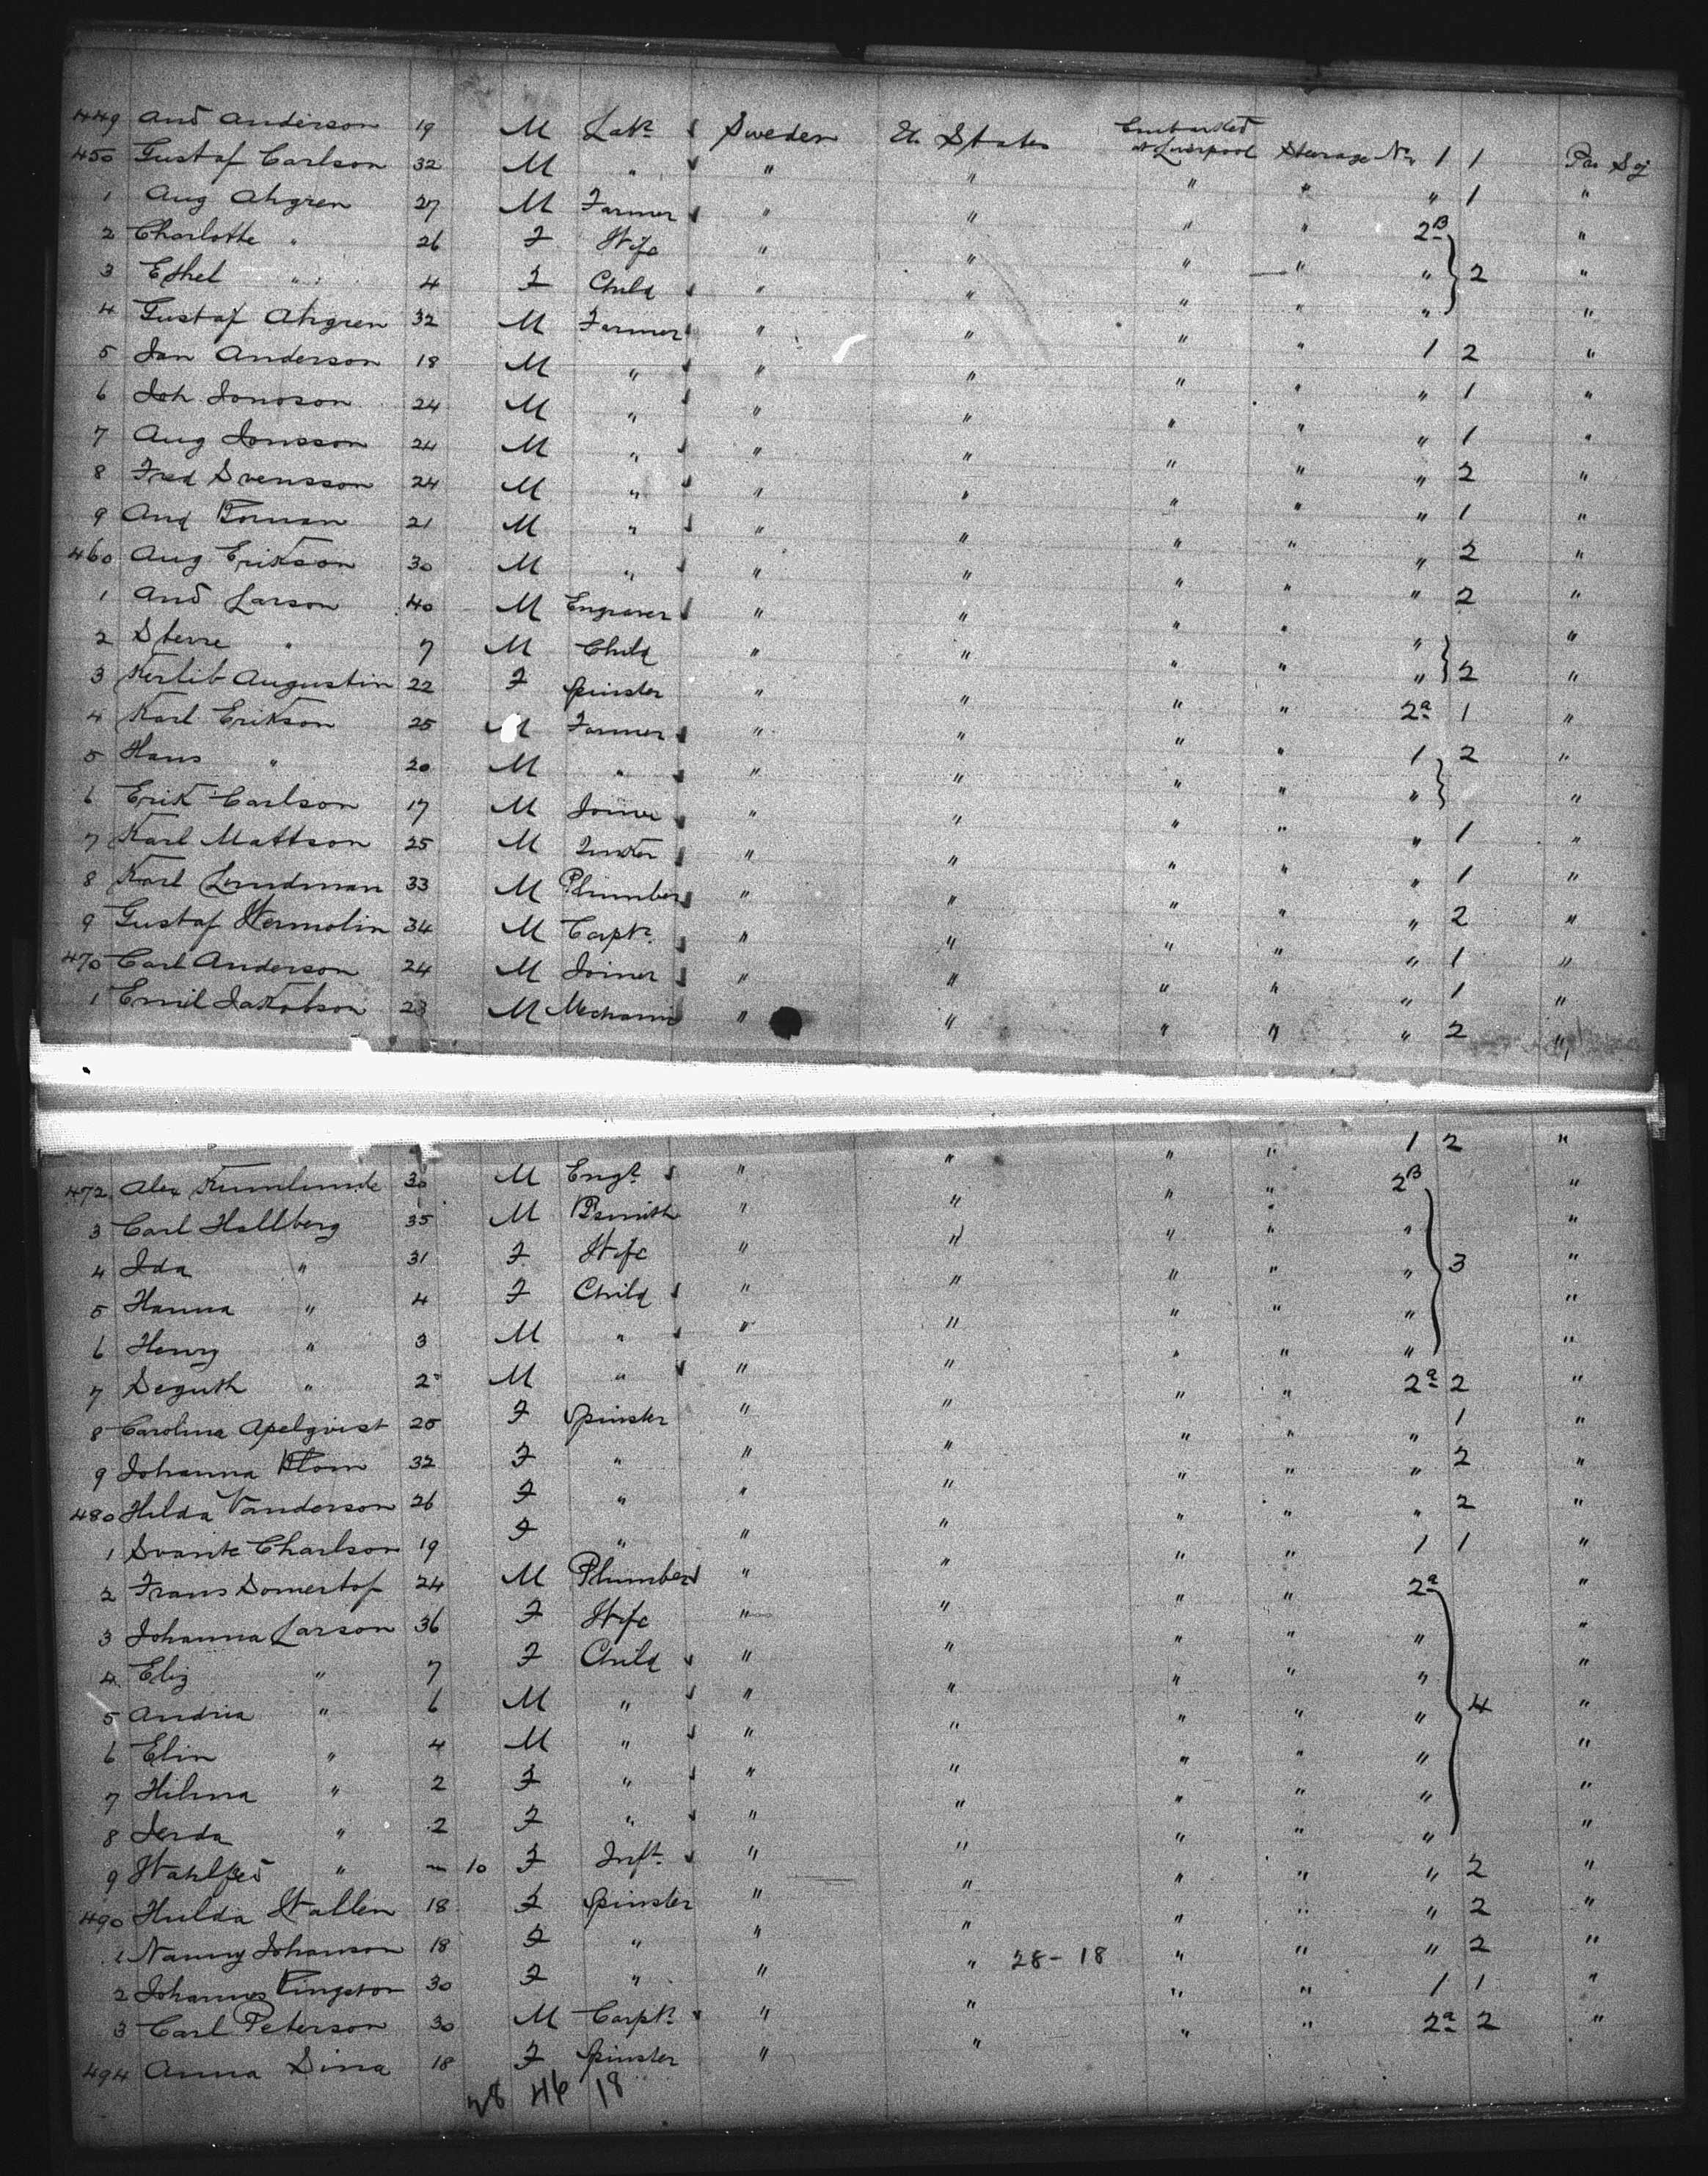 449 And Anderson 19 M Labr Sweden U States Embarked at Liverpool Steerage No 1 1 Pro Soj
450 Gustaf Carlson 32 M " " " " " " 1 "
1 Aug Ahgren 27 M Farmer " " " " 2B "
2 Charlotte " 26 F Wife " " " " " 2 "
3 Ethel " 4 F Child " " " " " "
4 Gustaf Ahgren 32 M Farmer " " " " 1 2 "
5 Jan Anderson 18 M " " " " " " 1 "
6 Joh Jonoson 24 M " " " " " " 1 "
7 Aug Jonsson 24 M " " " " " " 2 "
8 Fred Svensson 24 M " " " " " " 1 "
9 Aug 21 M " " " " " " 2 "
460 Aug Erikson 30 M " " " " " " 2 "
1 And Larson 40 M Engraver " " " " "
2 " 7 M Child " " " " " 2 "
3 Augustin 22 F Spinster " " " " 2a 1 "
4 Karl Erikson 25 M Farmer " " " " 1 2 "
5 Hans " 20 M " " " " " " "
6 Erik Carlson 17 M " " " " " 1 "
7 Karl Mattson 25 M " " " " " 1 "
8 Karl Lindman 33 M Plumber " " " " " 2 "
9 Gustaf Wermolin 34 M Carptr " " " " " 1 "
470 Carl Anderson 24 M Joiner " " " " " 1 "
1 Emil Jakobson 23 M Mechanic " " " " " 2 "
472 Alex 30 M Engr " " " " 1 2 "
3 Carl Hallberg 35 M Bsmith " " " " 2B "
4 Ida " 31 F Wife " " " " " 3 "
5 Hanna " 4 F Child " " " " " "
6 Henry " 3 M " " " " " " "
7 Seguth " 2 M " " " " " " "
8 Carolina Apelqvist 20 F Spinster " " " " 2a 2 "
9 Johanna Blom 32 F " " " " " " 1 "
480 Hilda Vanderson 26 F " " " " " " 2 "
1 Svante Charlson 19 F " " " " " " 2 "
2 Frans Somertof 24 M Plumber " " " " 1 1 "
3 Johanna Larson 36 F Wife " " " " 2a "
4 Eliz " 7 F Child " " " " " "
5 Andria " 6 M " " " " " " "
6 Elin " 4 M " " " " " " 4 "
7 Hilma " 2 F " " " " " " "
8 Jerda " 2 F " " " " " " "
9 " 10 F Inft " " " " " "
490 Hulda Wallen 18 F Spinster " " " " " 2 "
1 Nanny Johanson 18 F " " " " " " 2 "
2 Johannes 30 F " " " 28-18 " " " 2 "
3 Carl Peterson 30 M Carptr " " " " 1 1 "
494 Anna Sina 18 F Spinster " " " " 2a 2 "
28 46 18